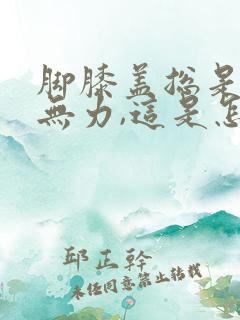 脚膝盖總是
無力,這是怎
邱正幹
未经同意禁止转载